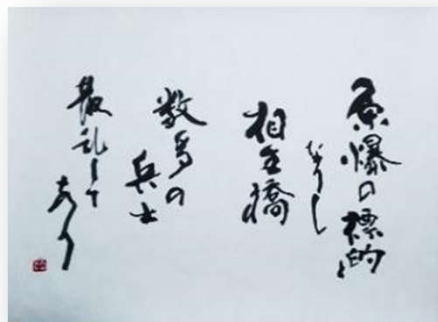 原爆の標的と
なりし
相生橋
数多の
兵士
散乱して
あり